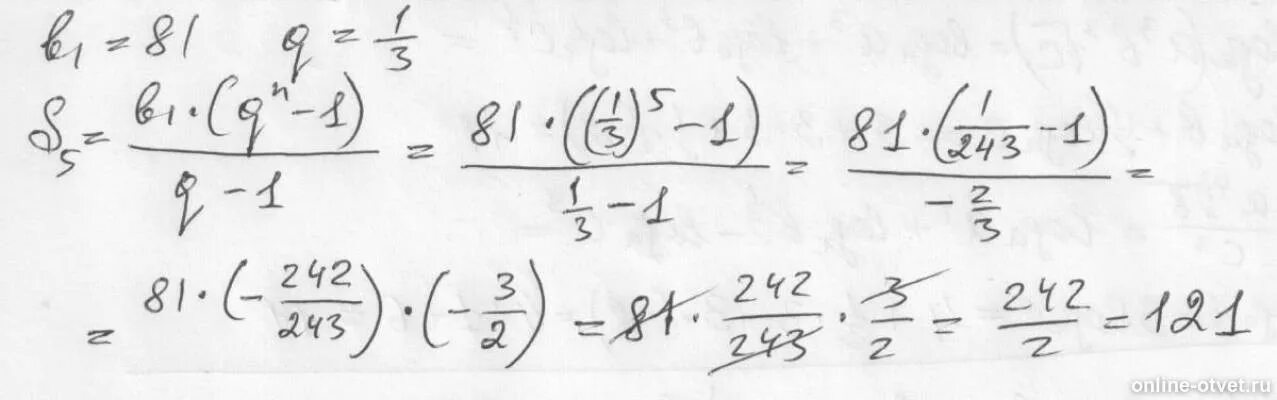 b₁ = 81 q = 1/3
S₅ = b₁·(qⁿ-1)/(q-1) = 81·((1/3)⁵-1)/(1/3-1) = 81·(1/243-1)/(-2/3) =
= 81·(-242/243)·(-3/2) = 81·242/243·3/2 = 242/2 = 121
online-otvet.ru